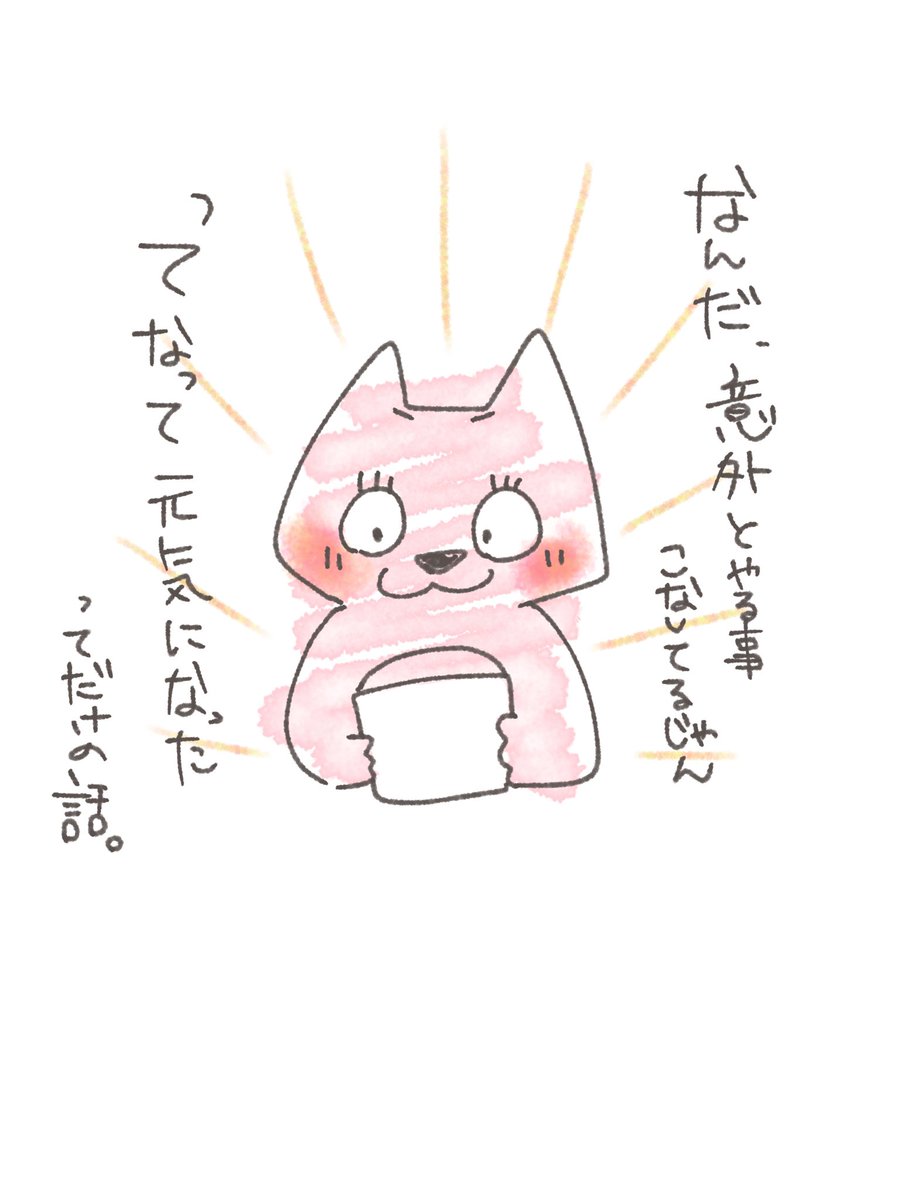 なんだ、意外とやる事
こなしてるじゃん
ってなって元気になった
ってだけの話。